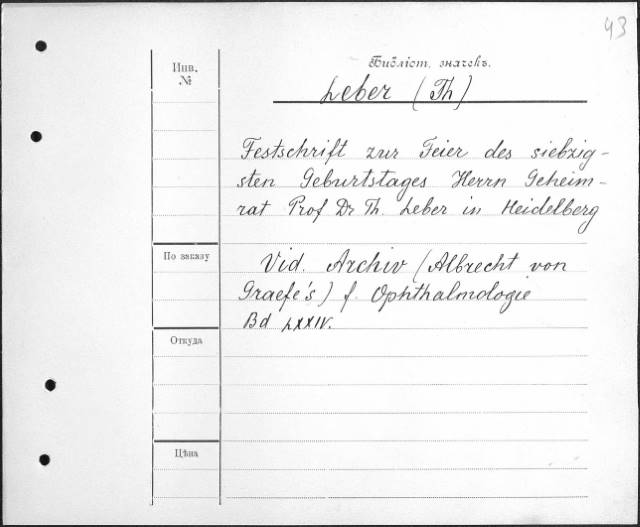 43
Инв.
№
Библіот. значекъ.
Leber (Th)
Festschrift zur Feier des siebzig-
sten Geburtstages Herrn Geheim-
rat Prof Dr Th. Leber in Heidelberg
По заказу
Vid. Archiv (Albrecht von
Graefe's) f. Ophthalmologie
Bd LXXIV.
Откуда
Цѣна